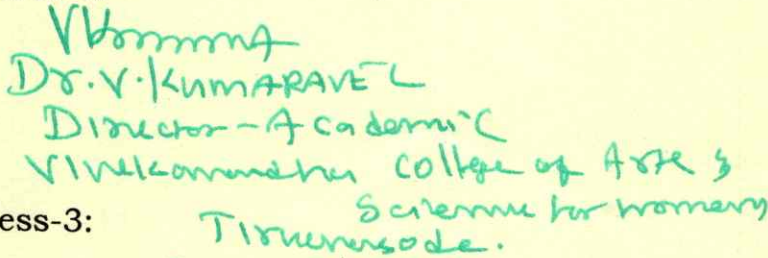 Dr. V. KUMARAVEL
Director - Academic
Vivekanandha College of Arts &
Sciences for women
ess-3: Tiruchengode.